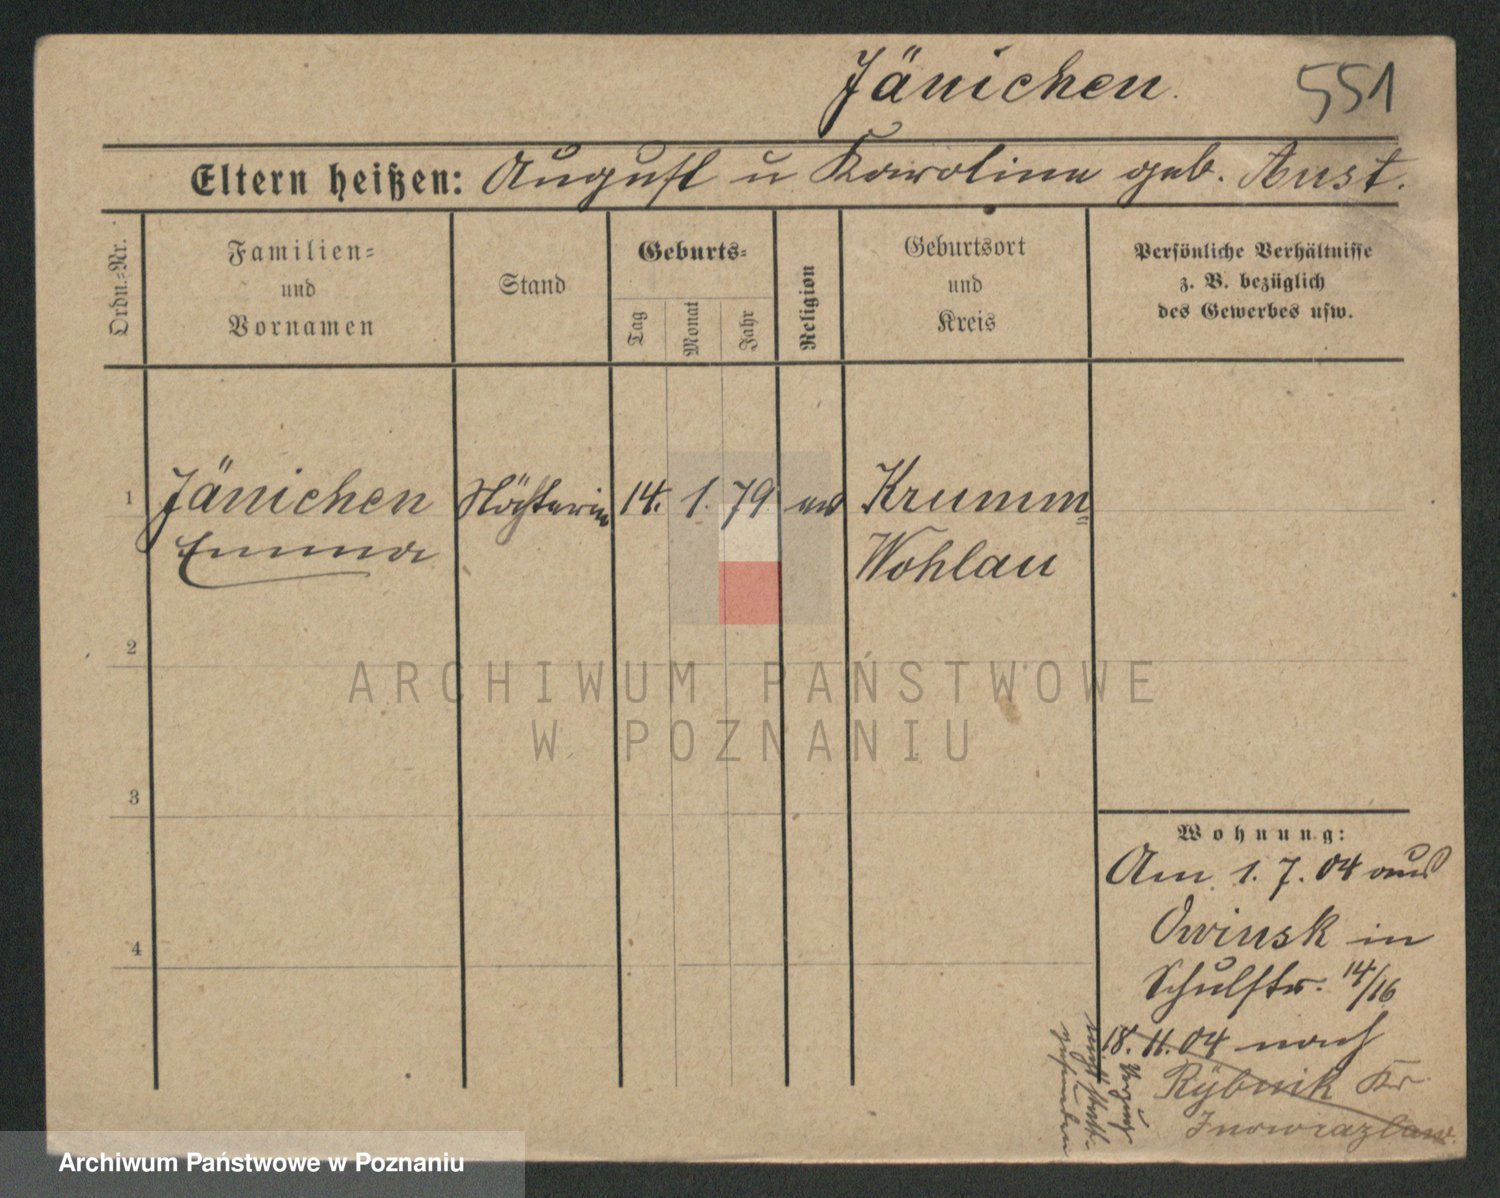 Jänichen.
551
Eltern heißen: August u Karoline geb. Aust.
Ordn.=Nr.
Familien=
und
Vornamen
Stand
Geburts=
Tag
Monat
Jahr
Religion
Geburtsort
und
Kreis
Persönliche Verhältnisse
z. B. bezüglich
des Gewerbes usw.
1 Jänichen 14. 1. 79. ev Krumm=
Emma Wohlau
2
ARCHIWUM PAŃSTWOWE
W POZNANIU
3
4
Wohnung:
Am 1. 7. 04 aus
Owinsk in
Schulstr. 14/16
18. 11. 04 nach
Rybnik Kr.
Inowrazlaw.
Verzug
nicht statt-
gefunden
Archiwum Państwowe w Poznaniu